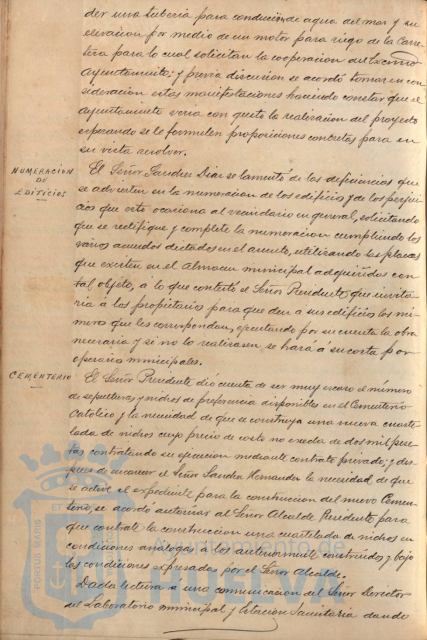 der una tuberia para conducción de agua del mar y su
elevacion por medio de un motor para riego de la Carre
tera para lo cual solicitan la cooperacion del Excmo
Ayuntamiento; y previa discusion se acordó tomar en con
sideracion estas manifestaciones haciendo constar que el
Ayuntamiento veria con gusto la realizacion del proyecto
esperando se le formulen proposiciones concretas para en
su vista resolver.
NUMERACION
DE
EDIFICIOS
El Señor Sanchez Diaz se lamentó de las deficiencias que
se advierten en la numeracion de los edificios y de los perjui
cios que esto ocasiona al vecindario en general, solicitando
que se rectifique y complete la numeracion cumpliendo los
varios acuerdos dictados en el asunto, utilizando las placas
que existen en el Almacen municipal adquiridos con
tal objeto, á lo que contestó el Señor Presidente que invita
ria á los propietarios para que den a sus edificios los nú
meros que les correspondan, ejecutando por su cuenta la obra
necesaria y si no lo realizasen se hará á su costa por
operarios municipales.
CEMENTERIO
El Señor Presidente dió cuenta de ser muy escaso el número
de sepulturas y nichos de preferencia disponibles en el Cementerio
Católico y la necesidad de que se construya una nueva cuarte
lada de nichos cuyo precio de costo no exceda de dos mil pese
tas contratando su ejecucion mediante contrato privado; y des
pues de encarecer el Señor Sanchez Hernandez la necesidad de que
se active el expediente para la construccion del nuevo Cemen
terio, se acordo autorizar al Señor Alcalde Presidente para
que contrate la construccion una cuartelada de nichos en
condiciones analogas á los anteriormente construidos y bajo
las condiciones expresadas por el Señor Alcalde.
Dada lectura á una comunicacion del Señor Director
del Laboratorio municipal y Estacion Sanitaria dando
PORTUS MARIS ET
Ayuntamiento de
HUELVA